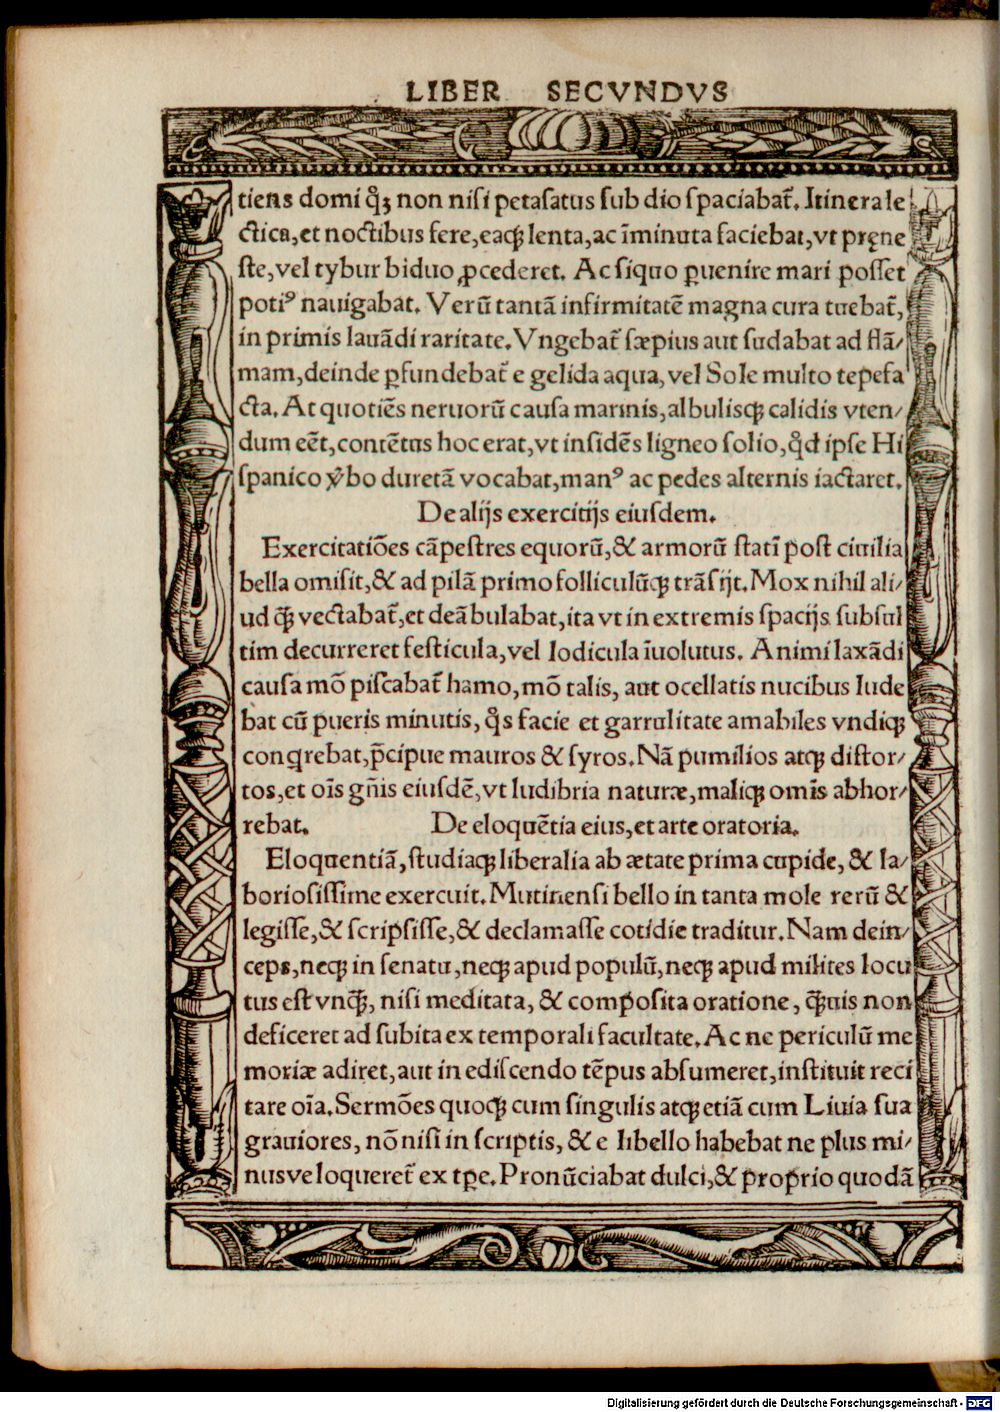 LIBER SECVNDVS
tiens domi qꝫ non nisi petasatus sub dio spaciabat᷑. Itinera le
ctica, et noctibus fere, eaqꝫ lenta, ac īminuta faciebat, vt pręne
ste, vel tybur biduo ꝓcederet. Ac siquo ꝑuenire mari posset
potiꝰ nauigabat. Verū tantā infirmitatē magna cura tuebat᷑,
in primis lauādi raritate. Vngebat᷑ sæpius aut sudabat ad flā/
mam, deinde ꝑfundebat᷑ e gelida aqua, vel Sole multo tepefa
cta. At quotiēs neruorū causa marinis, albulisqꝫ calidis vten/
dum eēt, contētus hoc erat, vt insidēs ligneo solio, qd̄ ipse Hi
spanico v̓bo duretā vocabat, manꝰ ac pedes alternis iactaret.
De alijs exercitijs eiusdem.
Exercitatiōes cāpestres equorū, & armorū statī post ciuilia
bella omisit, & ad pilā primo folliculūqꝫ trāsijt. Mox nihil ali/
ud qꝫ̄ vectabat᷑, et deābulabat, ita vt in extremis spacijs subsul
tim decurreret sesticula, vel lodicula īuolutus. Animi laxādi
causa mō piscabat᷑ hamo, mō talis, aut ocellatis nucibus lude
bat cū pueris minutis, qͦs facie et garrulitate amabiles vndiqꝫ
conqrebat, p̄cipue mauros & syros. Nā pumilios atqꝫ distor/
tos, et oīs gn̄is eiusdē, vt ludibria naturæ, maliqꝫ omīs abhor/
rebat. De eloquētia eius, et arte oratoria.
Eloquentiā, studiaqꝫ liberalia ab ætate prima cupide, & la/
boriosissime exercuit. Mutinensi bello in tanta mole rerū &
legisse, & scripsisse, & declamasse cotidie traditur. Nam dein/
ceps, neqꝫ in senatu, neqꝫ apud populū, neqꝫ apud milites locu
tus est vnqꝫ̄, nisi meditata, & composita oratione, qꝫ̄uis non
deficeret ad subita ex temporali facultate. Ac ne periculū me
moriæ adiret, aut in ediscendo tēpus absumeret, instituit reci
tare oīa. Sermōes quoqꝫ cum singulis atqꝫ etiā cum Liuia sua
grauiores, nō nisi in scriptis, & e libello habebat ne plus mi/
nusve loqueret᷑ ex tꝑe. Pronūciabat dulci, & proprio quodā
Digitalisierung gefördert durch die Deutsche Forschungsgemeinschaft - DFG